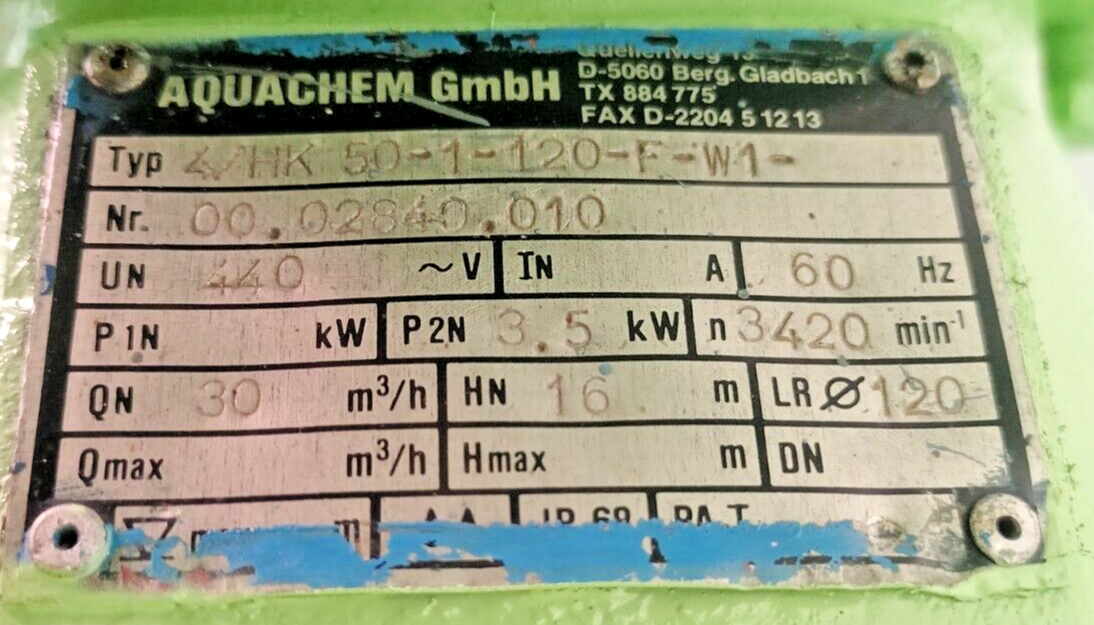 Quellenweg
AQUACHEM GmbH
D-5060 Berg. Gladbach 1
TX 884 775
FAX D-2204 5 12 13
Typ 4/HK 50-1-120-F-W1-
Nr. 00.02840.010
UN 440 ~V IN A 60 Hz
P1N kW P2N 3.5 kW n 3420 min-1
QN 30 m³/h HN 16 m LR Ø 120
Qmax m³/h Hmax m DN